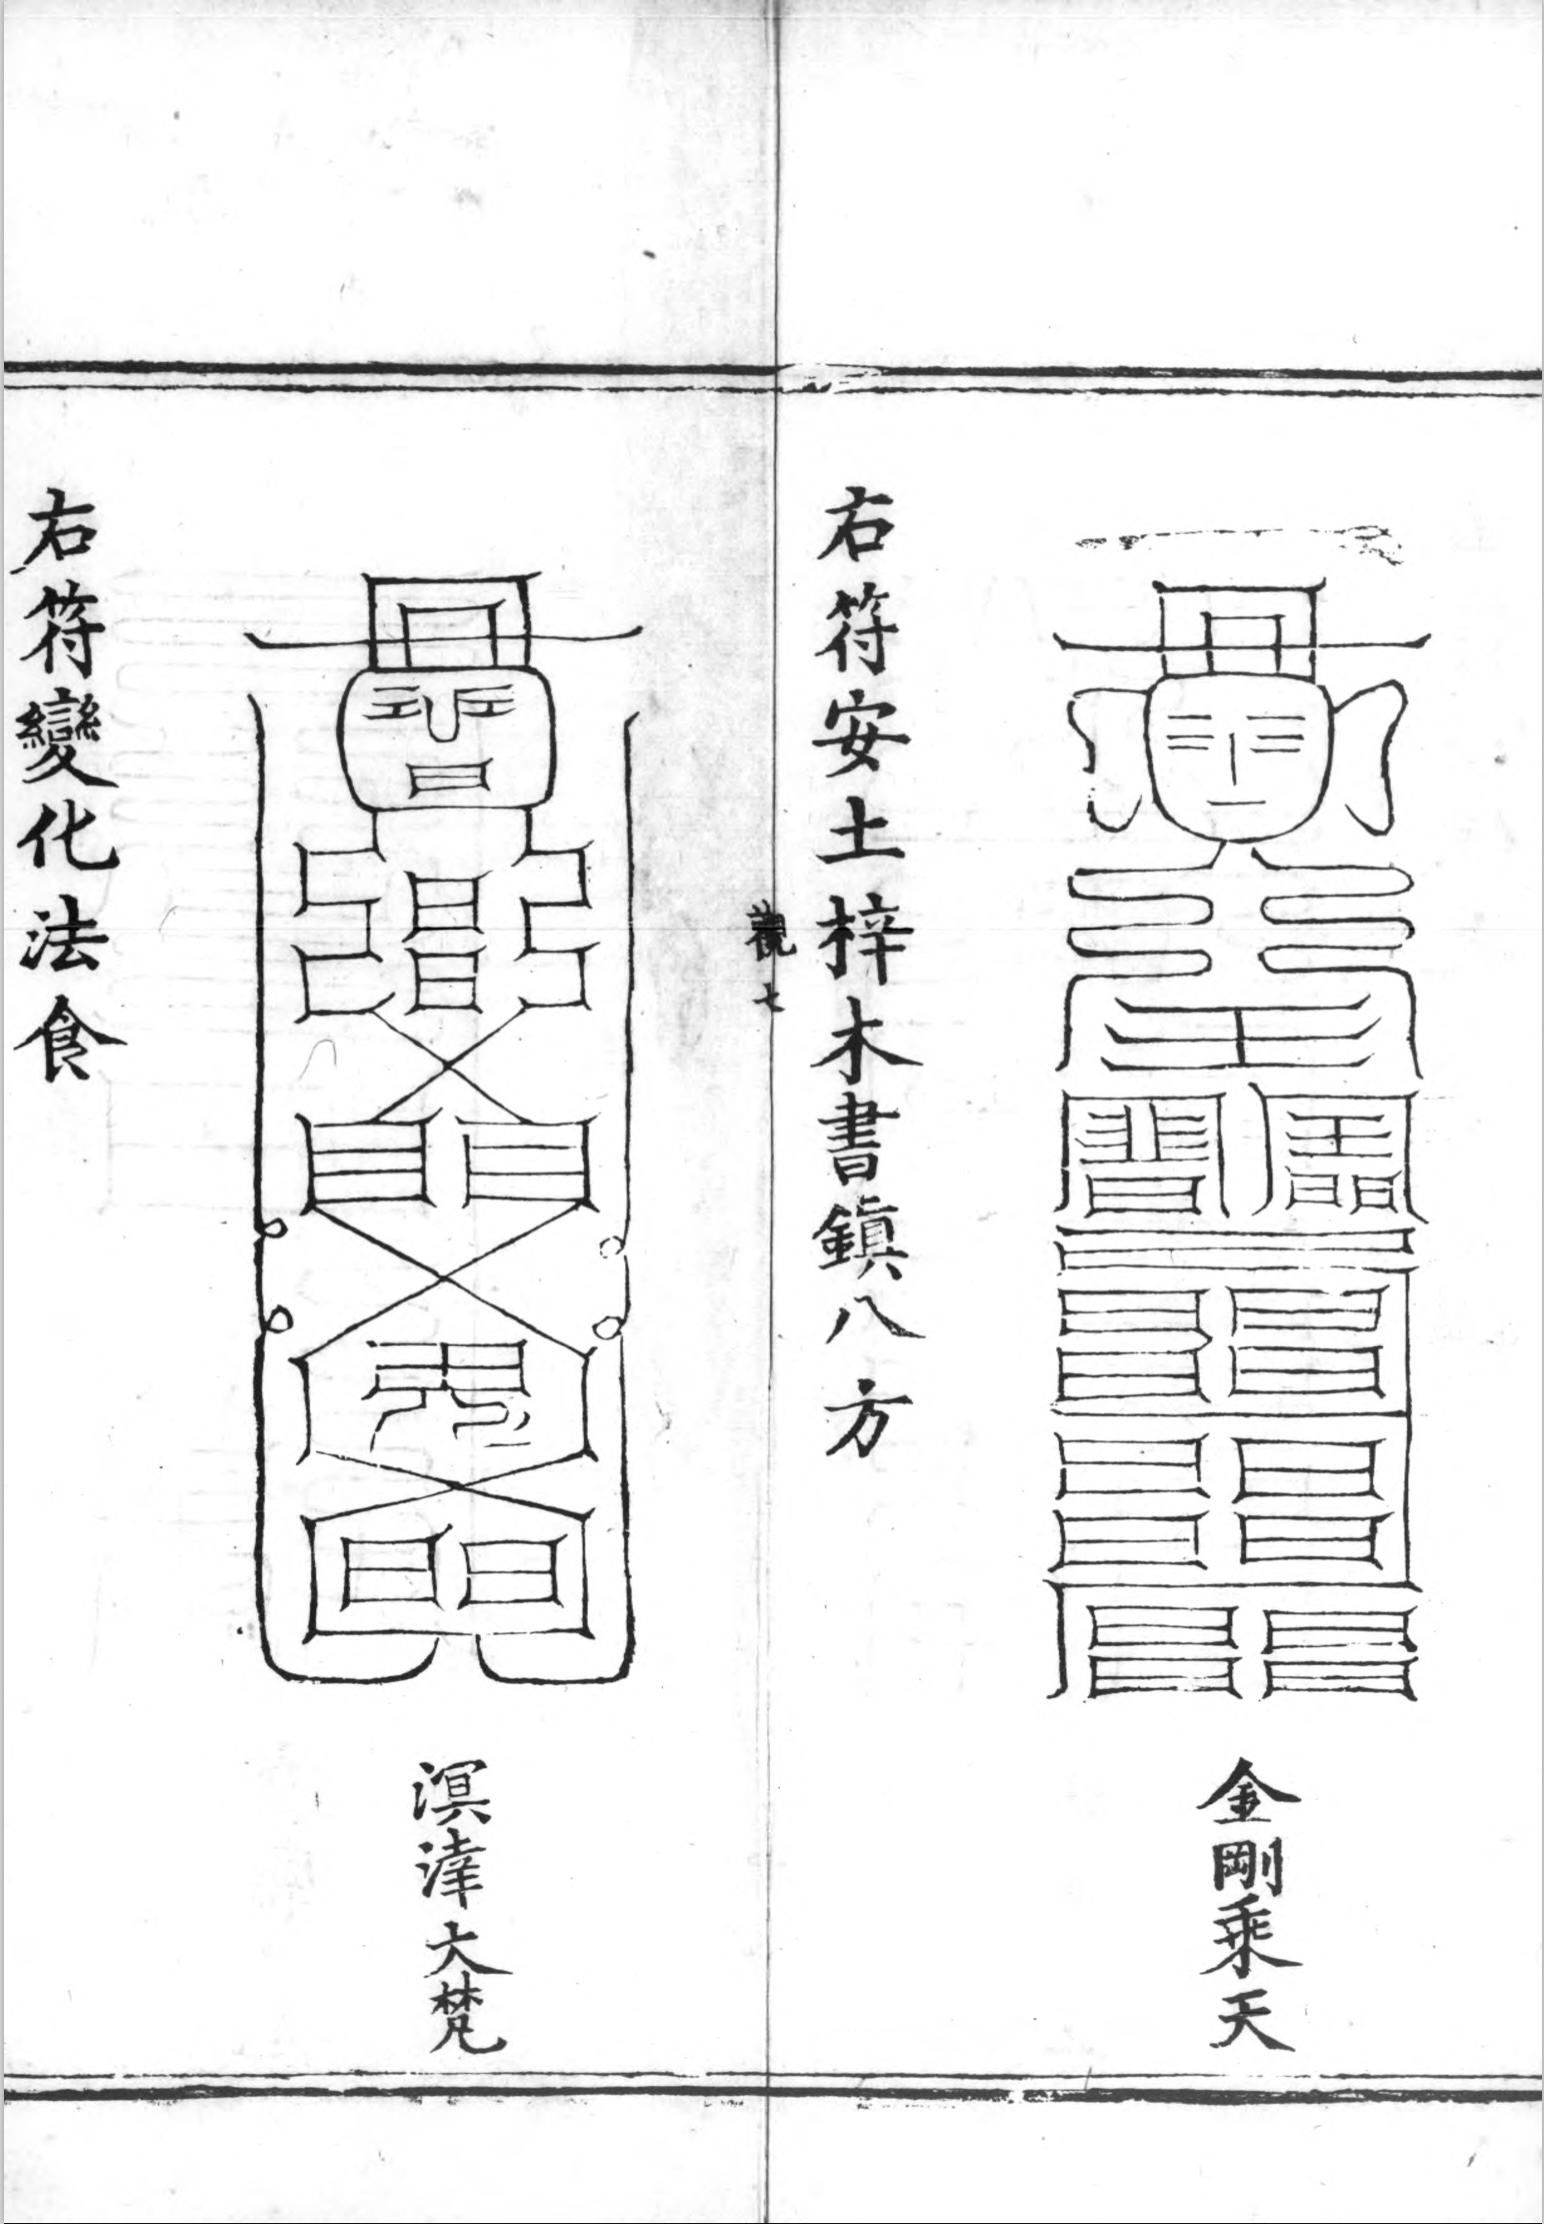 金剛乘天
右符安土梓木書鎮八方
觀七
溟涬大梵
右符變化法食